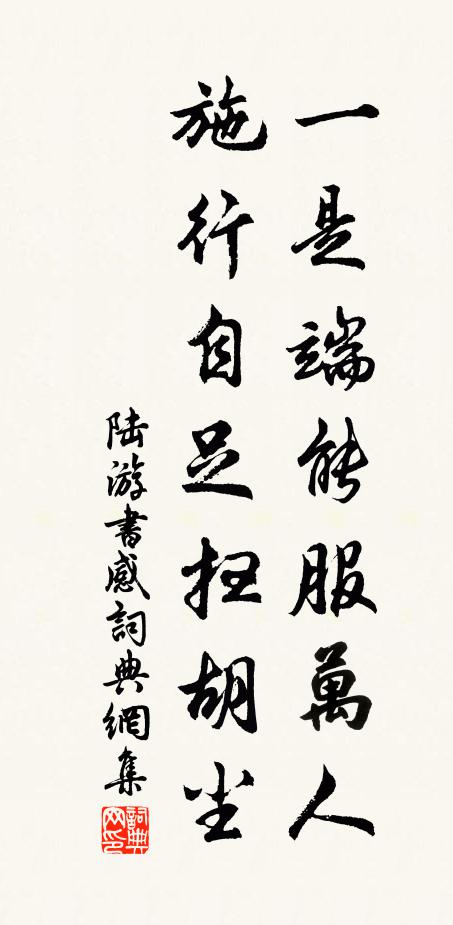 一是端能服萬人
施行自足扫胡尘
陆游書感詞典網集
詞典网印